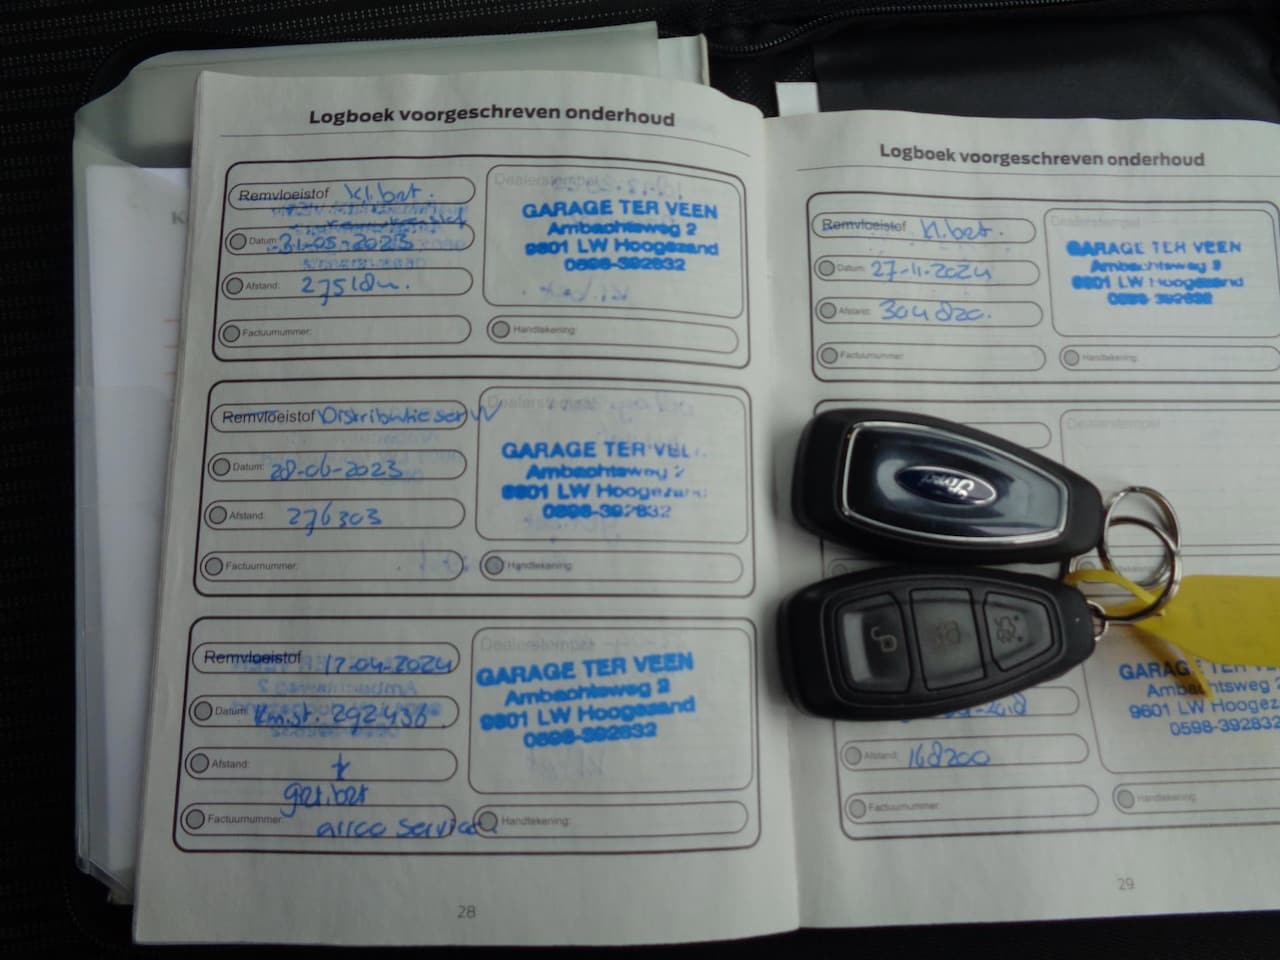 Logboek voorgeschreven onderhoud
Remvloeistof kl.bet.
Dealerstempel
Datum: 31-05-2023
Afstand: 275184.
Factuurnummer:
Handtekening:
GARAGE TER VEEN
Ambachtsweg 2
9601 LW Hoogezand
0598-392632
Remvloeistof Distributieser W
Dealerstempel
Datum: 28-06-2023
Afstand: 276303
Factuurnummer:
Handtekening:
GARAGE TER VEE
Ambachtsweg 2
9601 LW Hoogezand
0598-392632
Remvloeistof 17-04-2024
Dealerstempel
Datum: Km.st. 292456
Afstand: +
gr.bet
Factuurnummer: airco service
Handtekening:
GARAGE TER VEEN
Ambachtsweg 2
9601 LW Hoogezand
0598-392632
28
Logboek voorgeschreven onderhoud
Remvloeistof kl.bet.
Dealerstempel
Datum: 27-11-2024
Afstand: 304820.
Factuurnummer:
Handtekening:
GARAGE TER VEEN
Ambachtsweg 2
9601 LW Hoogezand
0598-392632
Dealerstempel
Ford
2018
Afstand: 168200
Factuurnummer:
Handtekening:
GARAGE TER V
Ambachtsweg 2
9601 LW Hoogez
0598-392632
29